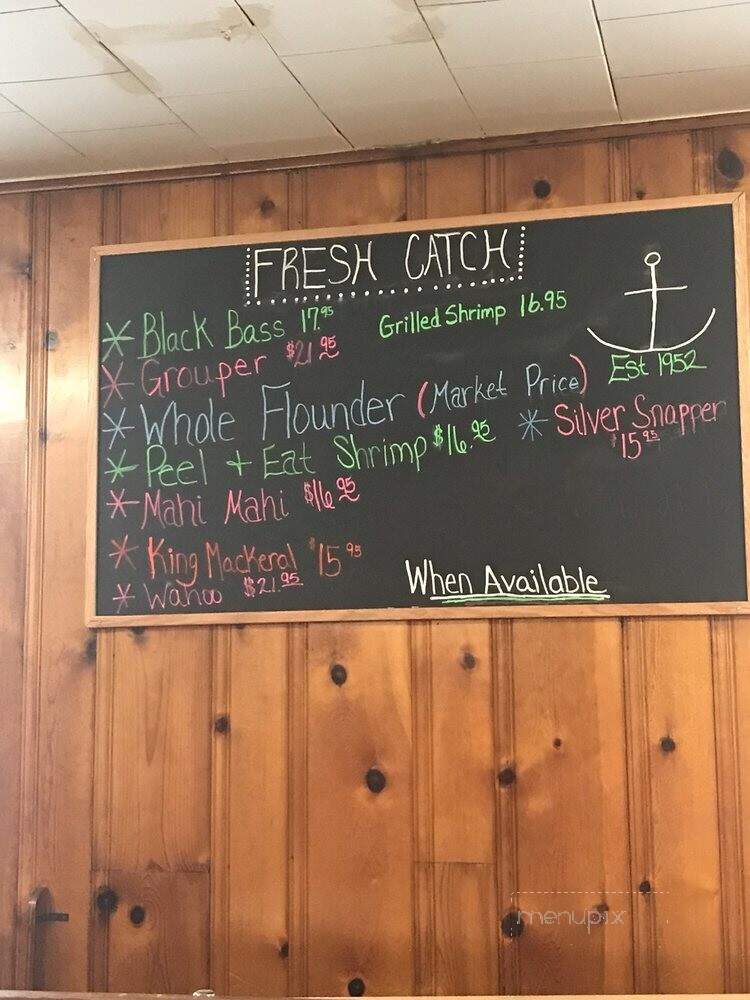 FRESH CATCH
Black Bass 17.95
Grilled Shrimp 16.95
Grouper $21.95
Est 1952
Whole Flounder (Market Price)
Silver Snapper
$15.95
Peel + Eat Shrimp $16.95
Mahi Mahi $16.95
King Mackeral $15.95
Wahoo $21.95
When Available
menupix